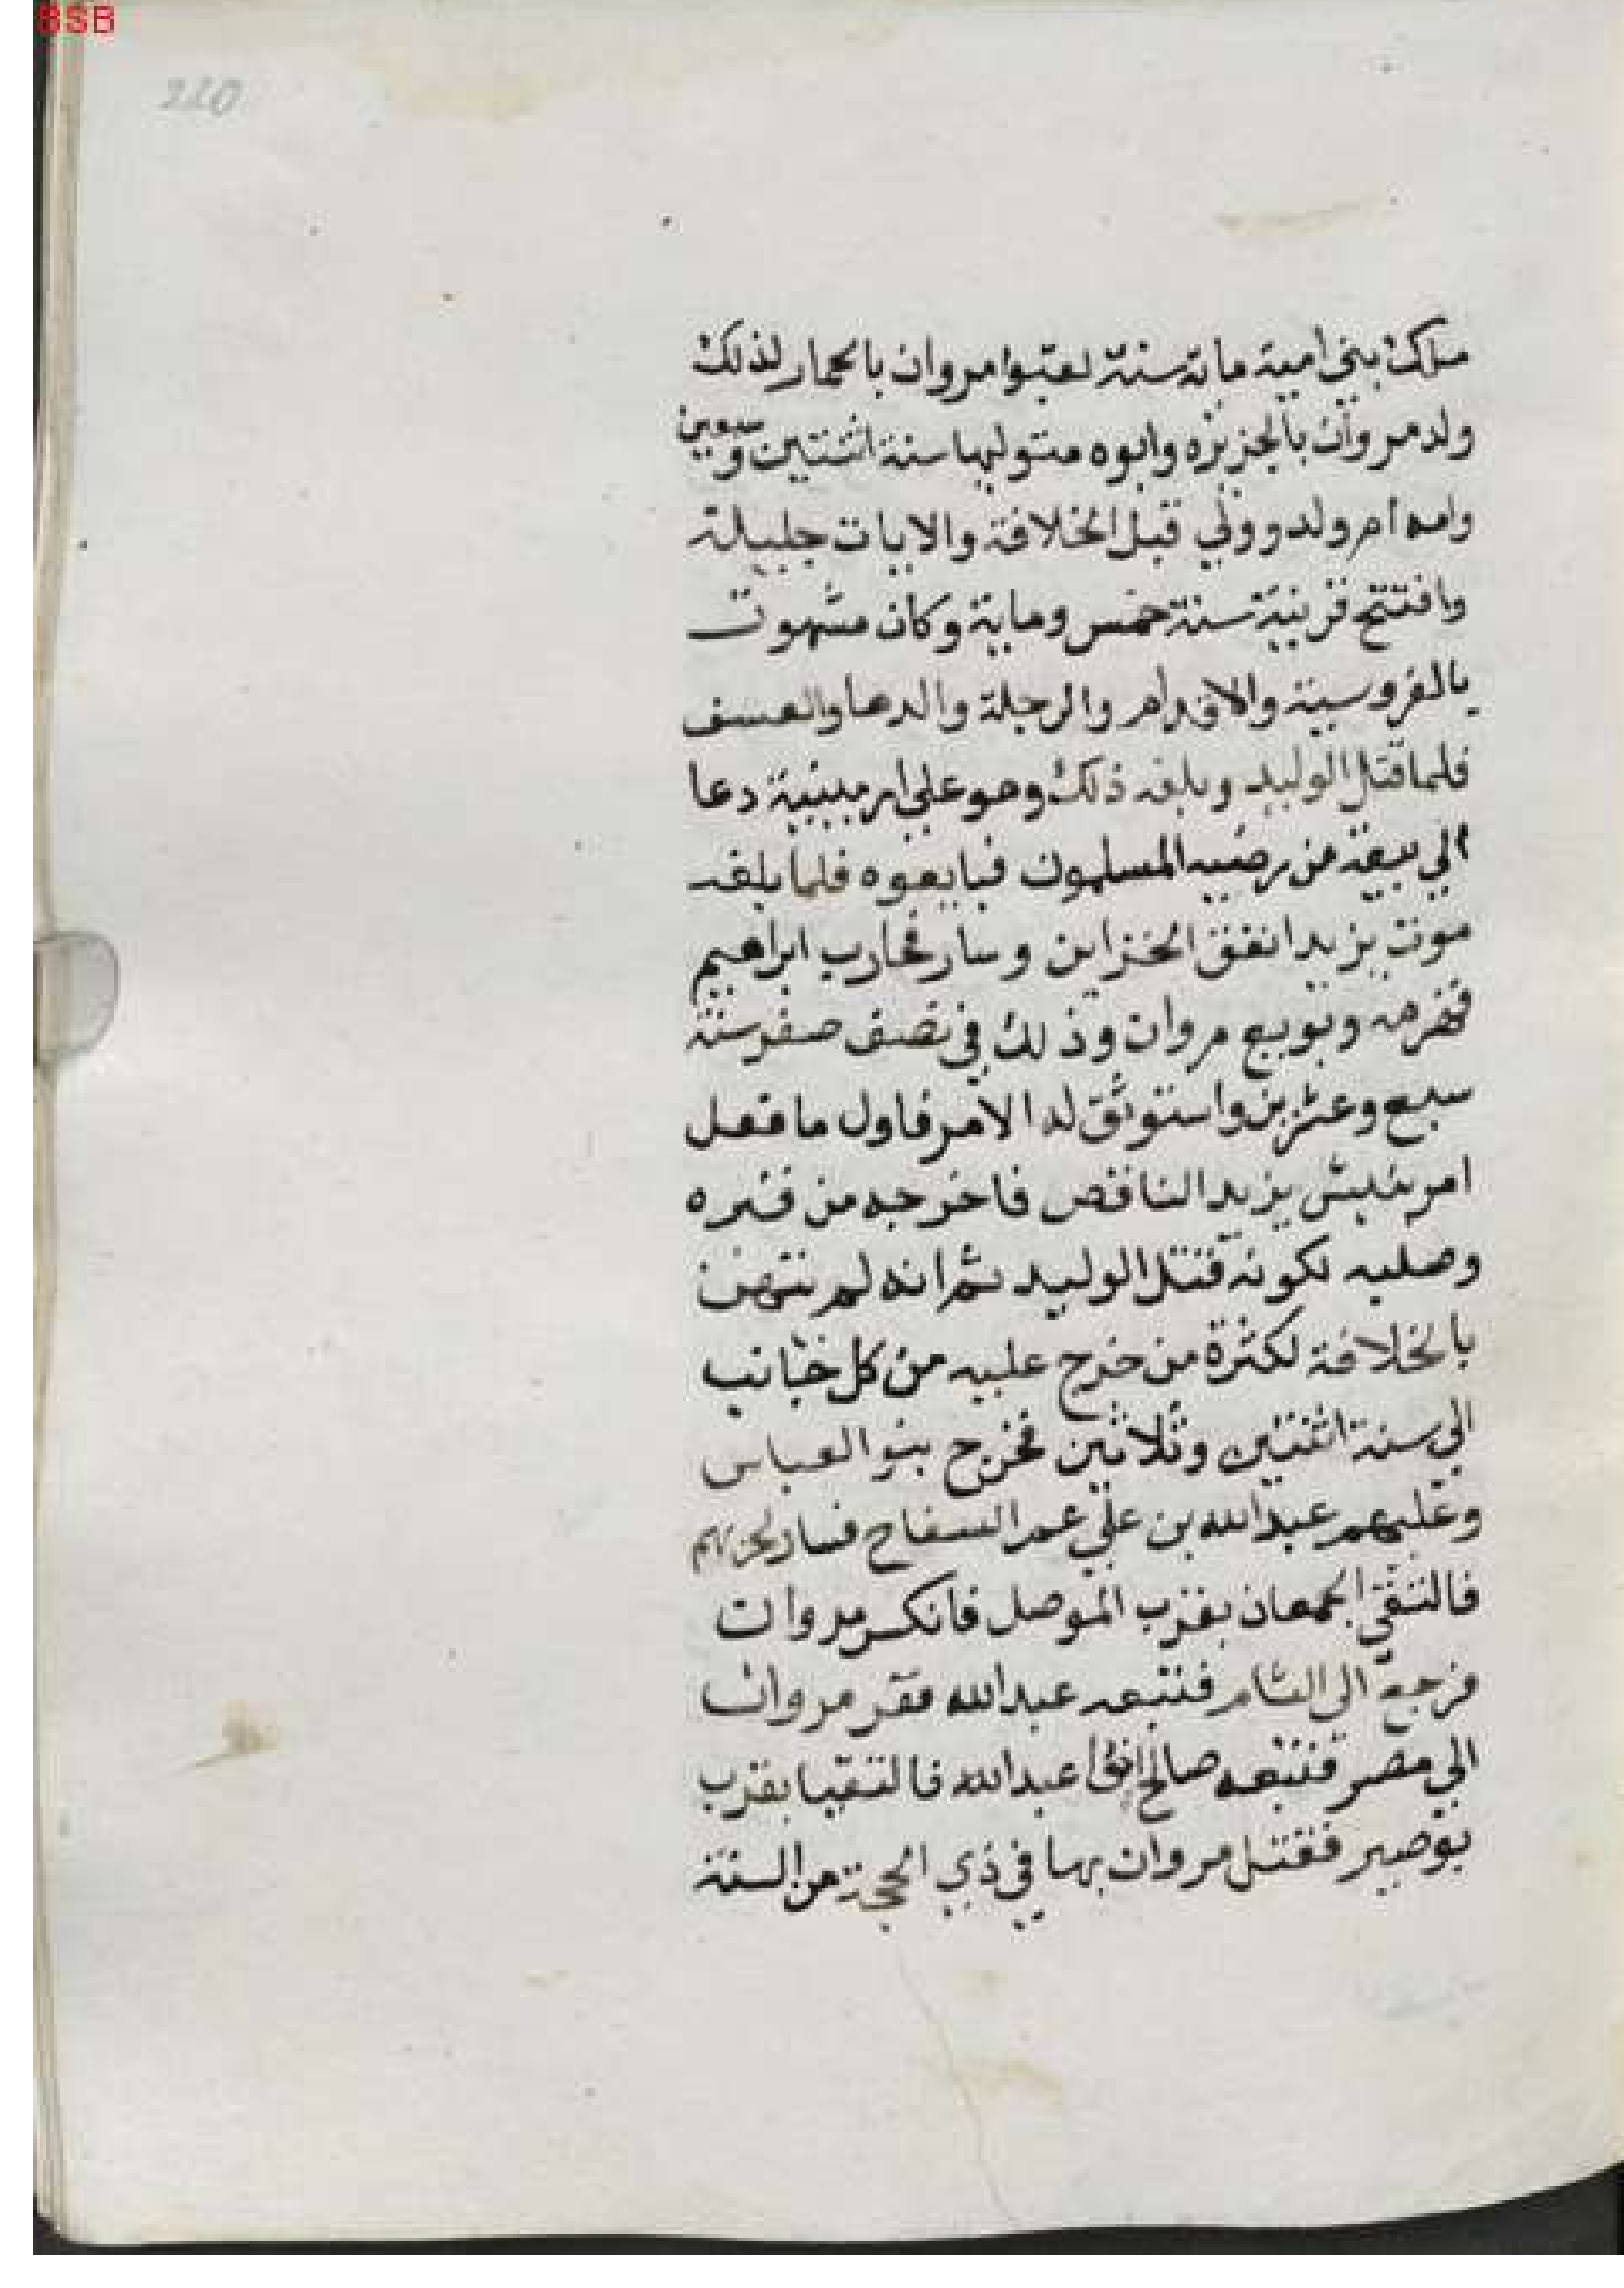 BSB
210
ملك بني امية ماية سنة لقبوا مروان بالحمار لذلك
ولد مروان بالجزيره وابوه متوليها سنة اثنتين وسبعين
وامه ام ولد وولي قبل الخلافة والايات جليلة
وافتتح قزينية سنة خمس وماية وكان مشهوت
بالفروسية والاقدام والرجلة والدها والعسف
فلما قتل الوليد وبلغه ذلك وهو علي ارمينية دعا
الي بيعة من رضيه المسلمون فبايعوه فلما بلغه
موت يزيد انفق الخزاين وسار فحارب ابراهيم
فهزمه وبويع مروان وذلك في نصف صفر سنة
سبع وعشرين واستوثق له الامر فاول ما فعل
امر بنبش يزيد الناقص فاخرجه من قبره
وصلبه لكونه قتل الوليد ثم انه لم يتهن
بالخلافة لكثرة من خرج عليه من كل جانب
الي سنة اثنتين وثلاثين فخرج بنوا العباس
وعليهم عبد الله بن علي عم السفاح فسار لحربهم
فالتقي الجمعان بقرب الموصل فانكسر مروان
فرجع الى الشام فتتبعه عبد الله ففر مروان
الي مصر فتتبعه صالح اخوا عبد الله فالتقيا بقرب
بوصير فقتل مروان بها في ذي الحجة من السنة